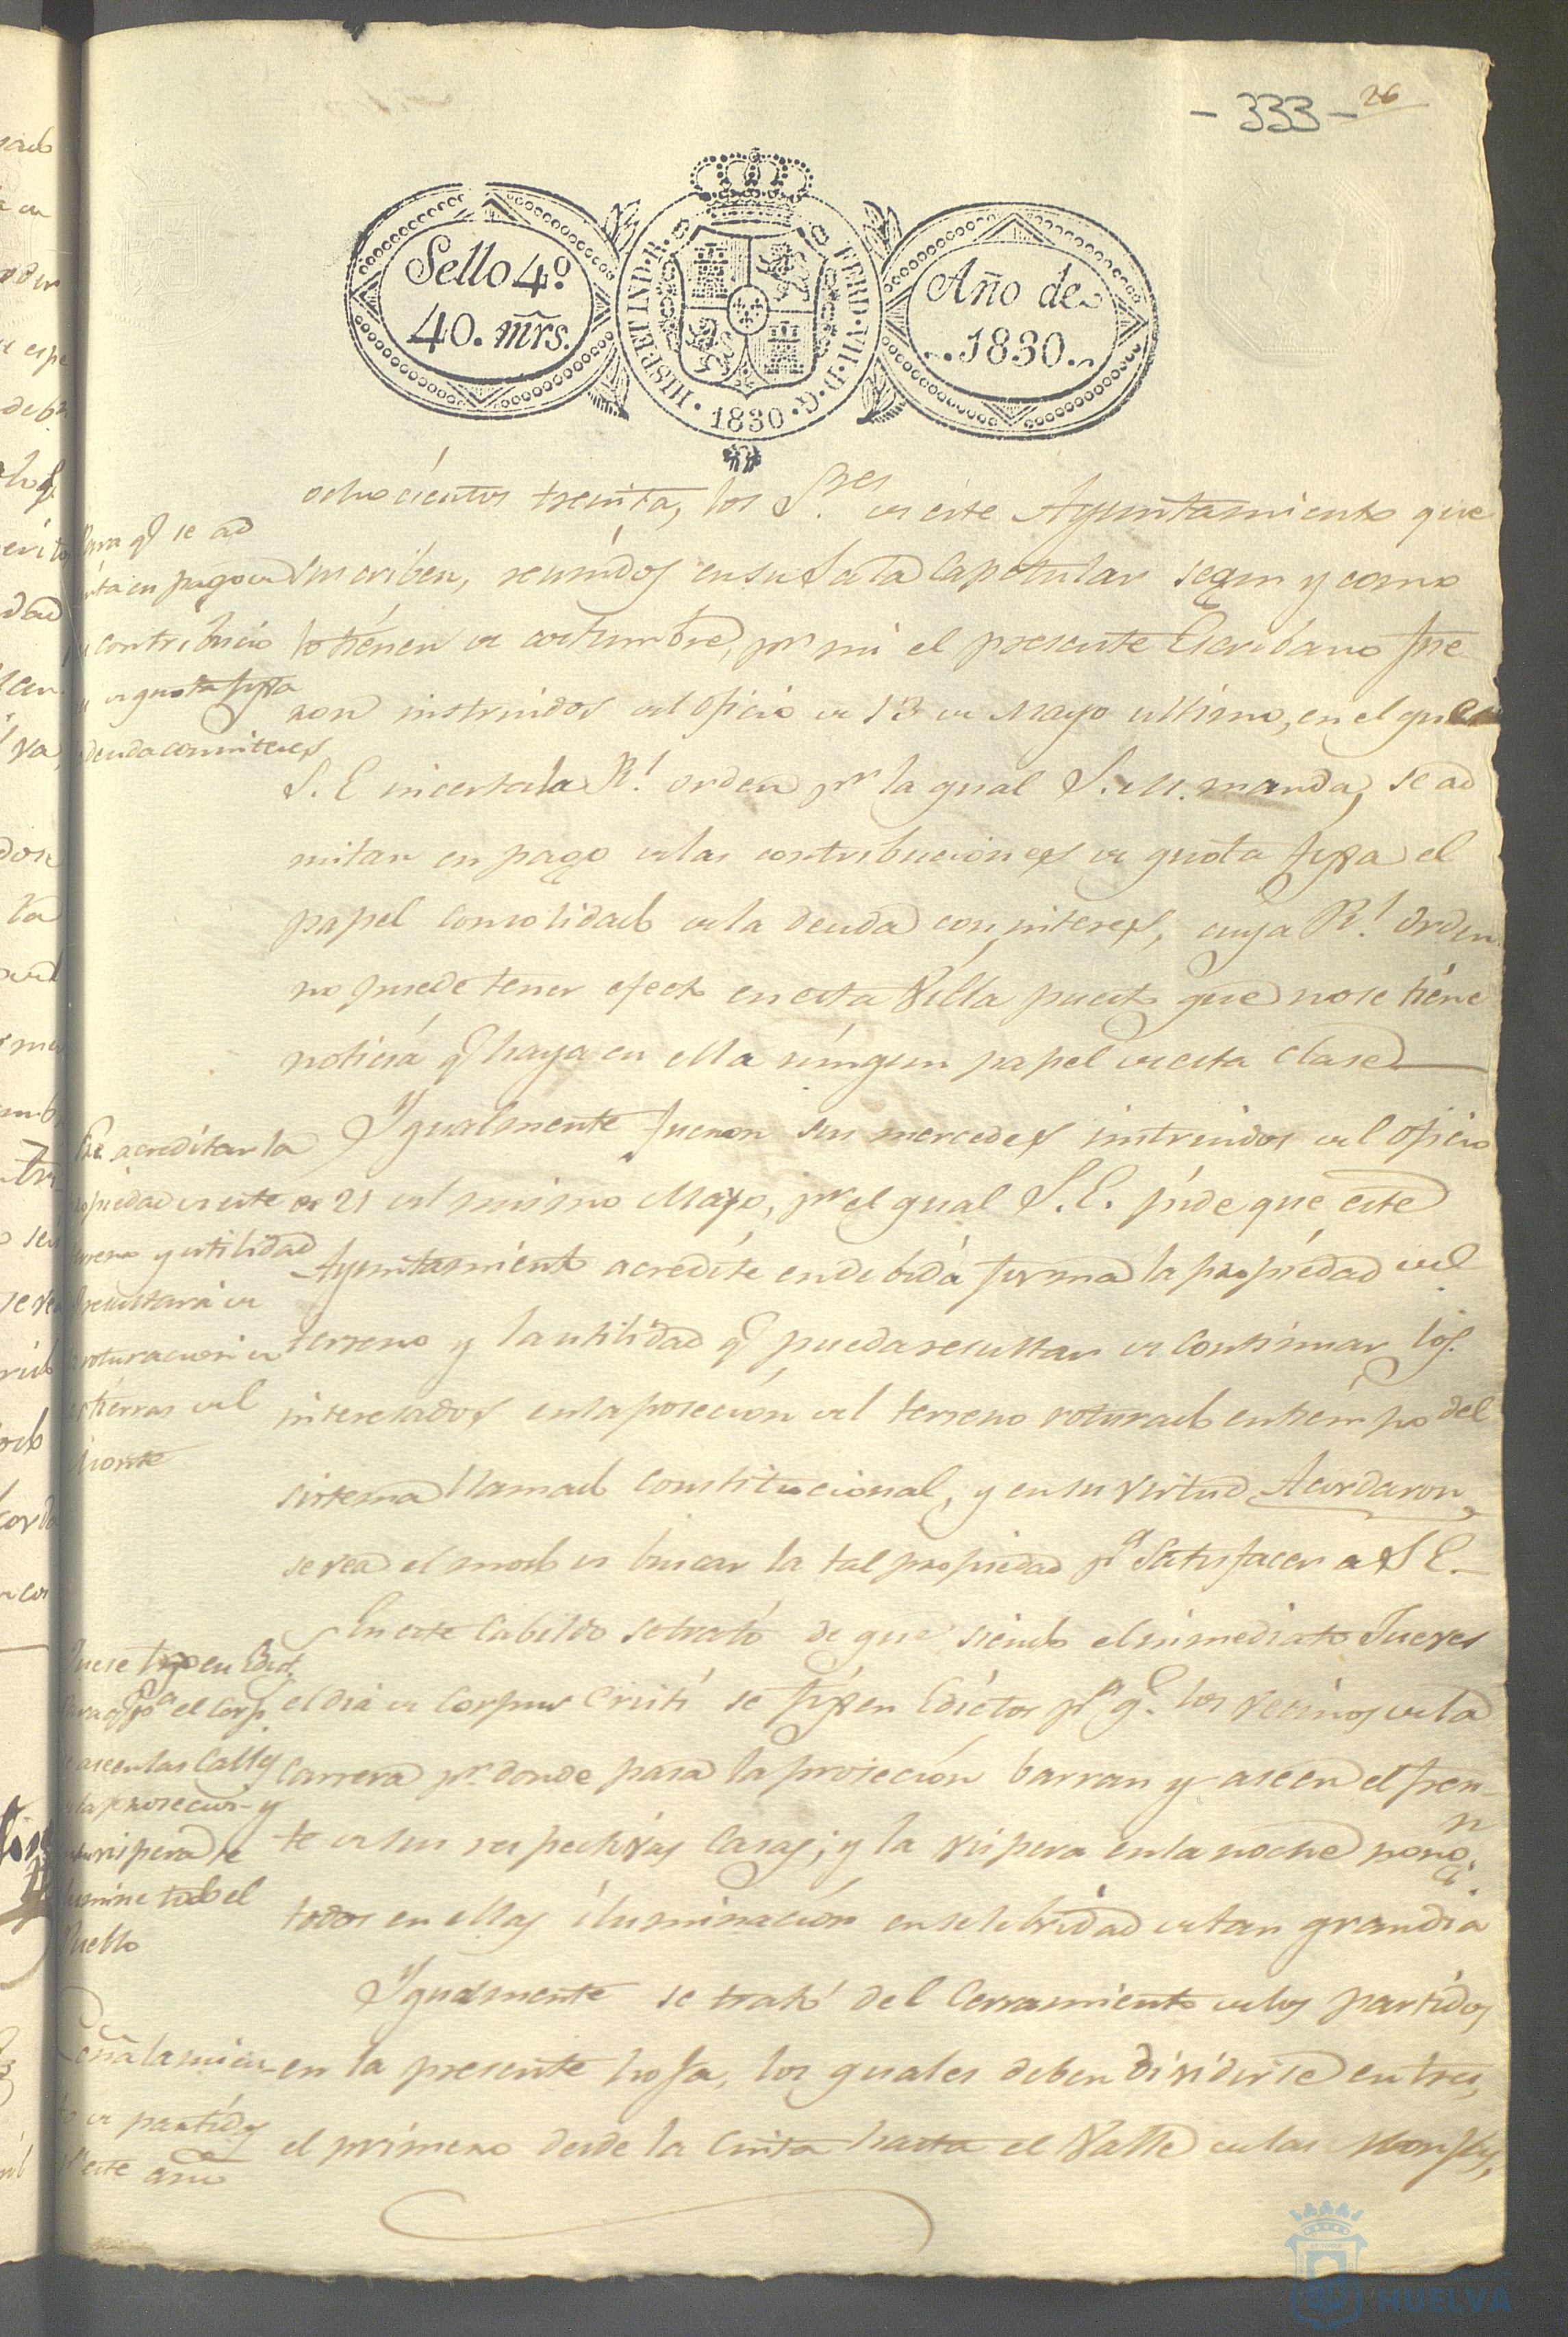 - 333 - 26
Sello 4º
40. mrs.
HISP. ET IND. R.
FERD. VII. D. G.
1830
Año de
1830.
ochocientos treinta, los S.res de este Ayuntamiento que
suscriben, reunidos en su Sala Capitular segun y como
lo tienen de costumbre, pr mi el presente Escribano fue
ron instruidos del oficio de 13 de Mayo ultimo, en el que
S. E incerta la Rl orden pr la qual S. M. manda, se ad
mitan en pago de las contribuciones de quota fixa el
papel consolidado de la deuda con interes, cuya Rl orden
no puede tener efecto en esta Villa puesto que no se tiene
noticia q haya en ella ningun papel de esta clase
Para q se ad
ta en pago de
contribucio
de quota fixa
deuda con interes
Ygualmente fueron sus mercedes instruidos del oficio
de 21 del mismo Mayo, pr el qual S. E. pide que este
Ayuntamiento acredite en debida forma la propiedad del
terreno y la utilidad q pueda resultar de continuar los
interesados en la posecion del terreno roturado en tiempo del
sistema llamado Constitucional, y en su virtud Acordaron
se vea el modo de buscar la tal propiedad pa Satisfacer a S E.
acreditar la
propiedad de este
terreno y utilidad
resultará de
roturacion de
tierras del
Monte
En este Cabildo se trató de que siendo el inmediato Jueves
el dia de Corpus Cristi se fixen Edictos pa q. los vecinos de la
Carrera pr donde pasa la prosecion barran y aseen el fren-
te de sus respectivas Casas; y la vispera en la noche pong.n
todos en ellas iluminacion en selebridad de tan gran dia
Que se fixen Edict.
para q pa el Corp.
aseen las Calles
la prosecion y
vispera se
ilumine todo el
Pueblo
Ygualmente se trató del Cerramiento de los partidos
en la presente hoja, los quales deben dividirse en tres,
el primero desde la Cinta hasta el Valle de las Monjas,
Señalamien-
to de partidos
este año
HUELVA